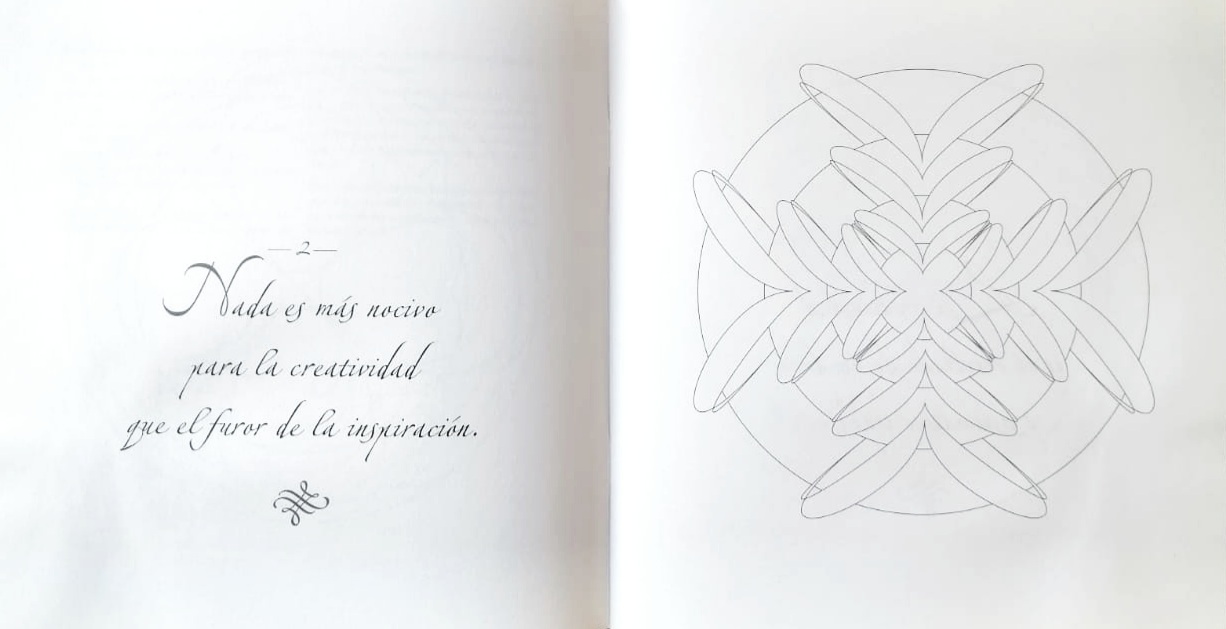 — 2 —
Nada es más nocivo
para la creatividad
que el furor de la inspiración.